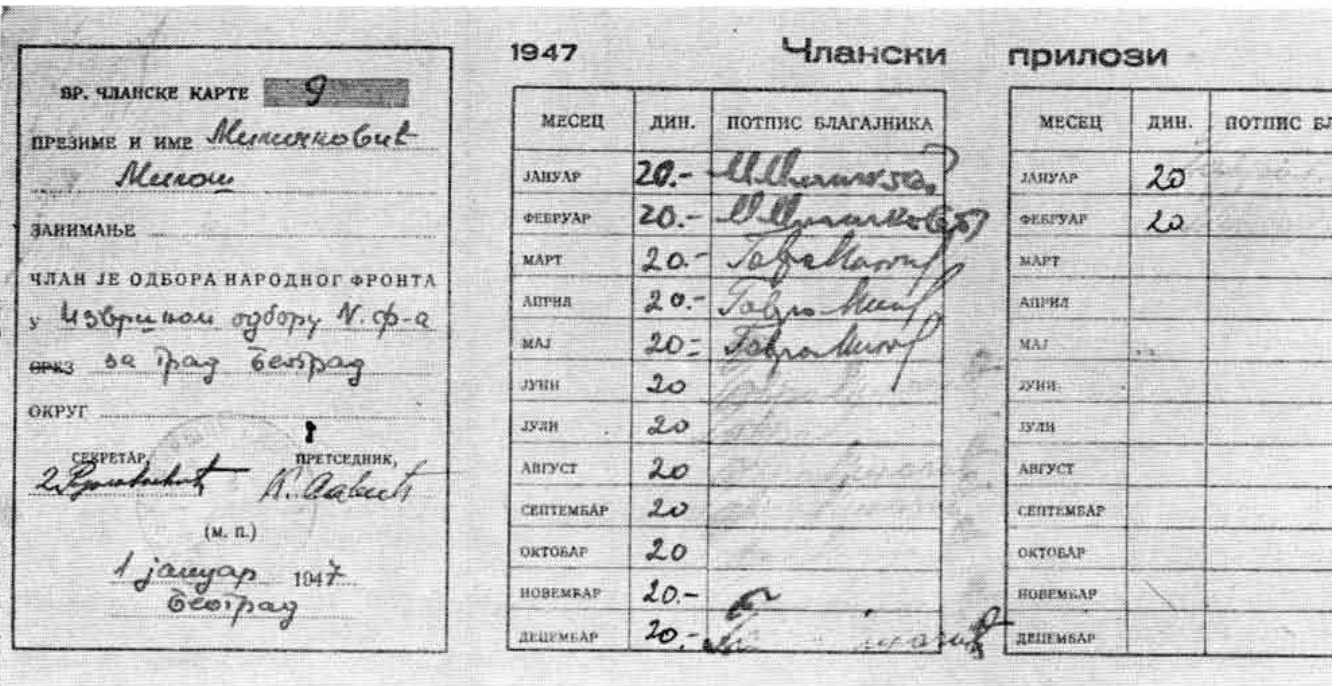 БР. ЧЛАНСКЕ КАРТЕ 9
ПРЕЗИМЕ И ИМЕ
Милош
ЗАНИМАЊЕ
ЧЛАН ЈЕ ОДБОРА НАРОДНОГ ФРОНТА
У Извршном одбору Н. ф-а
СРЕЗ за град Београд
ОКРУГ
СЕКРЕТАР, ПРЕТСЕДНИК,
К. Савић
(М. П.)
1 јануар 1947
Београд
1947 Члански прилози
МЕСЕЦ ДИН. ПОТПИС БЛАГАЈНИКА
ЈАНУАР 20.-
ФЕБРУАР 20.-
МАРТ 20.-
АПРИЛ 20.-
МАЈ 20.-
ЈУНИ 20
ЈУЛИ 20
АВГУСТ 20
СЕПТЕМБАР 20
ОКТОБАР 20
НОВЕМБАР 20.-
ДЕЦЕМБАР 20.-
МЕСЕЦ ДИН. ПОТПИС БЛ
ЈАНУАР 20
ФЕБРУАР 20
МАРТ
АПРИЛ
МАЈ
ЈУНИ
ЈУЛИ
АВГУСТ
СЕПТЕМБАР
ОКТОБАР
НОВЕМБАР
ДЕЦЕМБАР